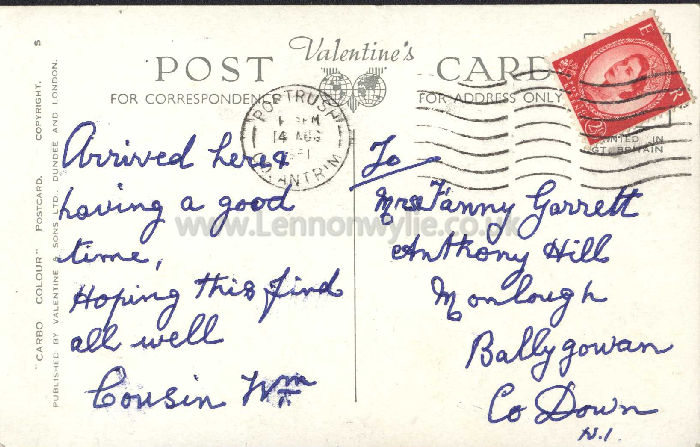 Valentine's
POST CARD
FOR CORRESPONDENCE FOR ADDRESS ONLY
PRINTED IN
GT. BRITAIN
PORTRUSH
14 AUG
CO. ANTRIM
Arrived here &
having a good
time,
Hoping this find
all well
Cousin Wm
To
Mrs Fanny Garrett
Anthony Hill
Monlough
Ballygowan
Co Down
N.I.
"CARBO COLOUR" POSTCARD. COPYRIGHT. S
PUBLISHED BY VALENTINE & SONS LTD., DUNDEE AND LONDON.
www.Lennonwylie.co.uk